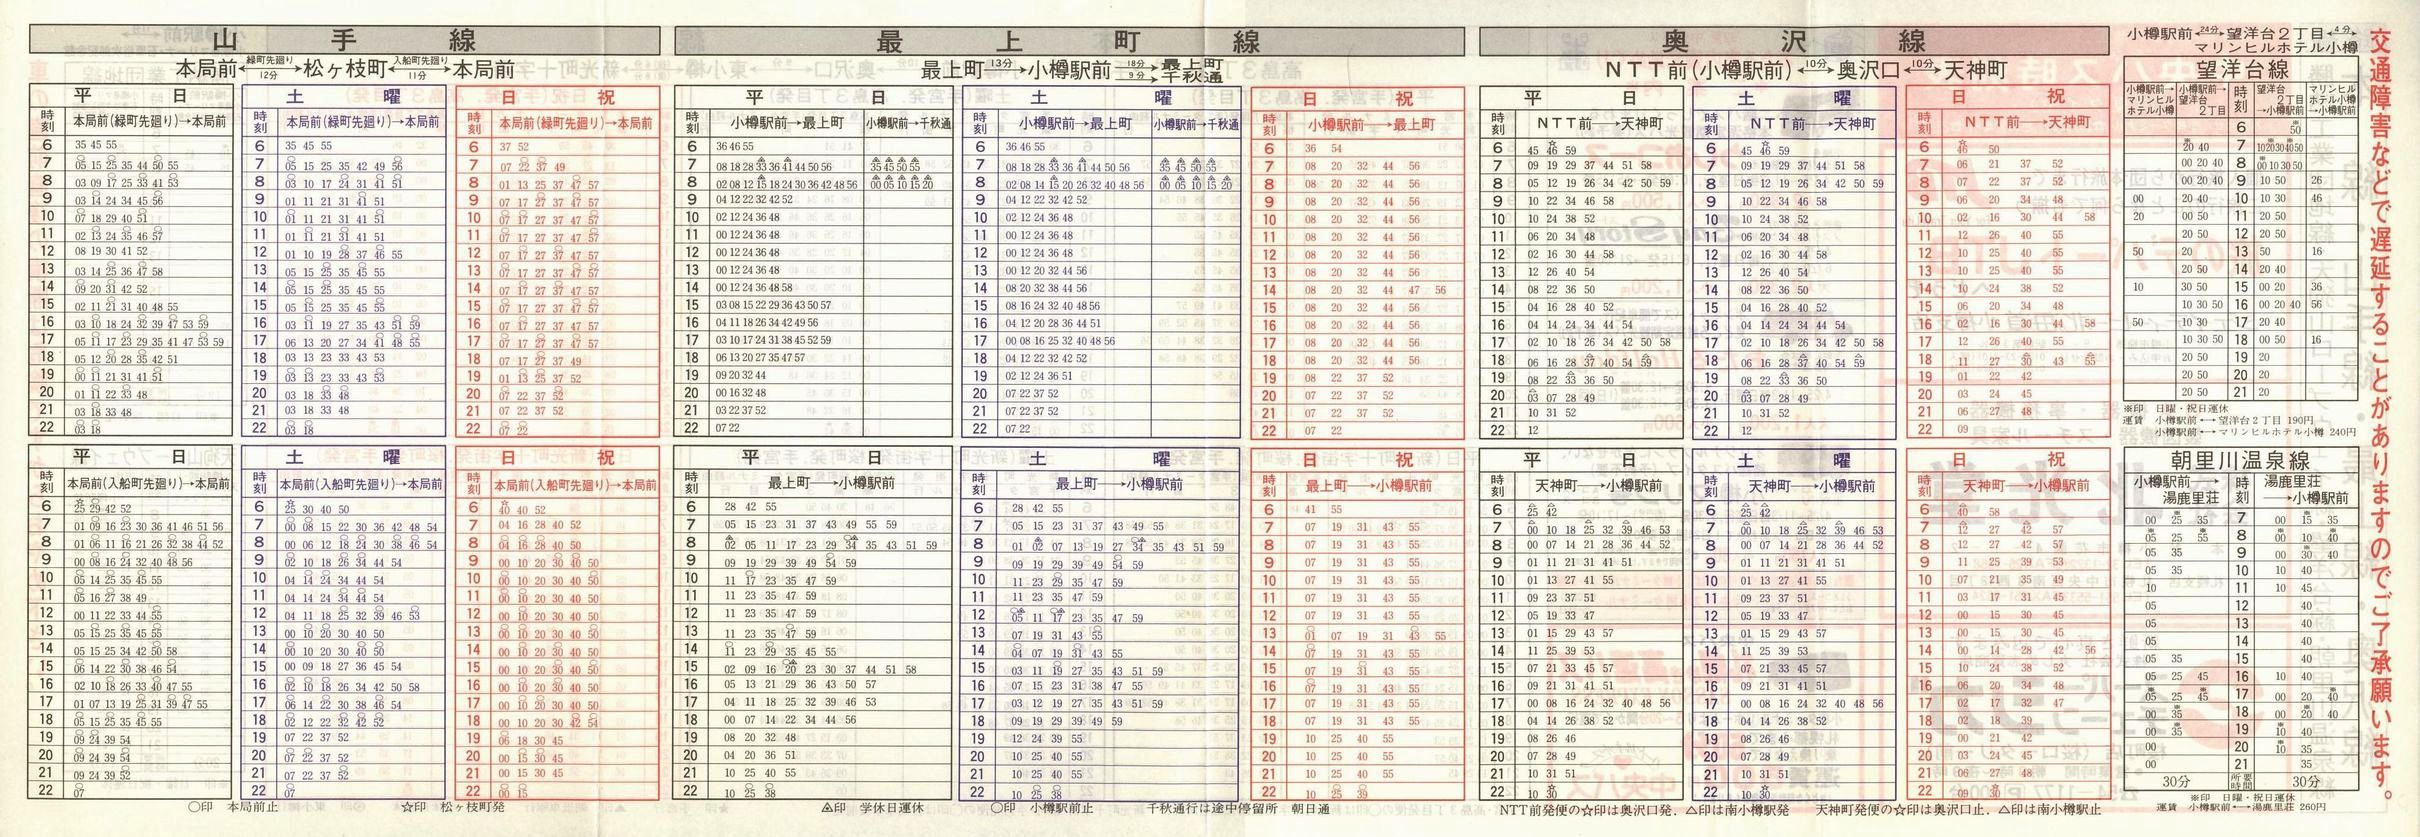 山手線
本局前←緑町先廻り 12分→松ヶ枝町←入船町先廻り 11分→本局前
平日
時刻 本局前(緑町先廻り)→本局前
6 35 45 55
7 05 15 25 35 44 50 55
8 03 09 17 25 33 41 53
9 03 14 24 34 45 56
10 07 18 29 40 51
11 02 13 24 35 46 57
12 08 19 30 41 52
13 03 14 25 36 47 58
14 09 20 31 42 52
15 02 11 21 31 40 48 55
16 03 10 18 24 32 39 47 53 59
17 05 11 17 23 29 35 41 47 53 59
18 05 12 20 28 35 42 51
19 00 11 21 31 41 51
20 01 11 22 33 48
21 03 18 33 48
22 03 18
土曜
時刻 本局前(緑町先廻り)→本局前
6 35 45 55
7 05 15 25 35 42 49 56
8 03 10 17 24 31 41 51
9 01 11 21 31 41 51
10 01 11 21 31 41 51
11 01 11 21 31 41 51
12 01 10 19 28 37 46 55
13 05 15 25 35 45 55
14 05 15 25 35 45 55
15 05 15 25 35 45 55
16 03 11 19 27 35 43 51 59
17 06 13 20 27 34 41 48 55
18 03 13 23 33 43 53
19 03 13 23 33 43 53
20 03 18 33 48
21 03 18 33 48
22 03 18
日祝
時刻 本局前(緑町先廻り)→本局前
6 37 52
7 07 22 37 49
8 01 13 25 37 47 57
9 07 17 27 37 47 57
10 07 17 27 37 47 57
11 07 17 27 37 47 57
12 07 17 27 37 47 57
13 07 17 27 37 47 57
14 07 17 27 37 47 57
15 07 17 27 37 47 57
16 07 17 27 37 47 57
17 07 17 27 37 47 57
18 07 17 27 37 49
19 01 13 25 37 52
20 07 22 37 52
21 07 22 37 52
22 07 22
平日
時刻 本局前(入船町先廻り)→本局前
6 25 29 42 52
7 01 09 16 23 30 36 41 46 51 56
8 01 06 11 16 21 26 32 38 44 52
9 00 08 16 24 32 40 48 56
10 05 14 25 35 45 55
11 05 16 27 38 49
12 00 11 22 33 44 55
13 05 15 25 35 45 55
14 05 15 25 34 42 50 58
15 06 14 22 30 38 46 54
16 02 10 18 26 33 40 47 55
17 01 07 13 19 25 31 39 47 55
18 05 15 25 35 45 55
19 09 24 39 54
20 09 24 39 54
21 09 24 39 52
22 07
土曜
時刻 本局前(入船町先廻り)→本局前
6 25 30 40 50
7 00 08 15 22 30 36 42 48 54
8 00 06 12 18 24 30 38 46 54
9 02 10 18 26 34 44 54
10 04 14 24 34 44 54
11 04 14 24 34 44 54
12 04 11 18 25 32 39 46 53
13 00 10 20 30 40 50
14 00 10 20 30 40 50
15 00 09 18 27 36 45 54
16 02 10 18 26 34 42 50 58
17 06 14 22 30 38 46 54
18 02 12 22 32 42 52
19 07 22 37 52
20 07 22 37 52
21 07 22 37 52
22 07
日祝
時刻 本局前(入船町先廻り)→本局前
6 40 40 52
7 04 16 28 40 52
8 04 16 28 40 50
9 00 10 20 30 40 50
10 00 10 20 30 40 50
11 00 10 20 30 40 50
12 00 10 20 30 40 50
13 00 10 20 30 40 50
14 00 10 20 30 40 50
15 00 10 20 30 40 50
16 00 10 20 30 40 50
17 00 10 20 30 40 50
18 00 10 20 30 42 54
19 06 18 30 45
20 00 15 30 45
21 00 15 30 45
22 00 15
○印 本局前止 ☆印 松ヶ枝町発
最上町線
最上町←13分→小樽駅前 18分→最上町 9分→千秋通
平日
時刻 小樽駅前→最上町 小樽駅前→千秋通
6 36 46 55
7 08 18 28 33 36 41 44 50 56 35 45 50 55
8 02 08 12 15 18 24 30 36 42 48 56 00 05 10 15 20
9 04 12 22 32 42 52
10 02 12 24 36 48
11 00 12 24 36 48
12 00 12 24 36 48
13 00 12 24 36 48
14 00 12 24 36 48 58
15 03 08 15 22 29 36 43 50 57
16 04 11 18 26 34 42 49 56
17 03 10 17 24 31 38 45 52 59
18 06 13 20 27 35 47 57
19 09 20 32 44
20 00 16 32 48
21 03 22 37 52
22 07 22
土曜
時刻 小樽駅前→最上町 小樽駅前→千秋通
6 36 46 55
7 08 18 28 33 36 41 44 50 56 35 45 50 55
8 02 08 14 15 20 26 32 40 48 56 00 05 10 15 20
9 04 12 22 32 42 52
10 02 12 24 36 48
11 00 12 24 36 48
12 00 12 24 36 48
13 00 12 20 32 44 56
14 08 20 32 38 44 56
15 08 16 24 32 40 48 56
16 04 12 20 28 36 44 51
17 00 08 16 25 32 40 48 56
18 04 12 22 32 42 52
19 02 12 24 36 51
20 07 22 37 52
21 07 22 37 52
22 07 22
日祝
時刻 小樽駅前→最上町
6 36 54
7 08 20 32 44 56
8 08 20 32 44 56
9 08 20 32 44 56
10 08 20 32 44 56
11 08 20 32 44 56
12 08 20 32 44 56
13 08 20 32 44 56
14 08 20 32 44 47 56
15 08 20 32 44 56
16 08 20 32 44 56
17 08 20 32 44 56
18 08 20 32 44 56
19 08 22 37 52
20 07 22 37 52
21 07 22 37 52
22 07 22
平日
時刻 最上町→小樽駅前
6 28 42 55
7 05 15 23 31 37 43 49 55 59
8 02 05 11 17 23 29 34 35 43 51 59
9 09 19 29 39 49 54 59
10 11 17 23 35 47 59
11 11 23 35 47 59
12 11 23 35 47 59
13 11 23 35 47 59
14 11 23 29 35 45 55
15 02 09 16 20 23 30 37 44 51 58
16 05 13 21 29 36 43 50 57
17 04 11 18 25 32 39 46 53
18 00 07 14 22 34 44 56
19 08 20 32 48
20 04 20 36 51
21 10 25 40 55
22 10 25 38
土曜
時刻 最上町→小樽駅前
6 28 42 55
7 05 15 23 31 37 43 49 55
8 01 02 07 13 19 27 34 35 43 51 59
9 09 19 29 39 49 54 59
10 11 23 29 35 47 59
11 11 23 35 47 59
12 05 11 17 23 35 47 59
13 07 19 31 43 55
14 07 19 31 43 55
15 03 11 19 27 35 43 51 59
16 07 15 23 31 38 47 55
17 03 12 19 27 35 43 51 59
18 09 19 29 39 49 59
19 12 24 39 55
20 10 25 40 55
21 10 25 40 55
22 10 25 38
日祝
時刻 最上町→小樽駅前
6 41 55
7 07 19 31 43 55
8 07 19 31 43 55
9 07 19 31 43 55
10 07 19 31 43 55
11 07 19 31 43 55
12 07 19 31 43 55
13 01 07 19 31 43 55
14 07 19 31 43 55
15 07 19 31 43 55
16 07 19 31 43 55
17 07 19 31 43 55
18 07 19 31 43 55
19 10 25 40 55
20 10 25 40 55
21 10 25 40 55
22 10 25 39
△印 学休日運休 ○印 小樽駅前止 千秋通行は途中停留所 朝日通
奥沢線
NTT前(小樽駅前)←10分→奥沢口←10分→天神町
平日
時刻 NTT前→天神町
6 45 46 59
7 09 19 29 37 44 51 58
8 05 12 19 26 34 42 50 59
9 10 22 34 46 58
10 10 24 38 52
11 06 20 34 48
12 02 16 30 44 58
13 12 26 40 54
14 08 22 36 50
15 04 16 28 40 52
16 04 14 24 34 44 54
17 02 10 18 26 34 42 50 58
18 06 16 28 37 40 54 59
19 08 22 33 36 50
20 03 07 28 49
21 10 31 52
22 12
土曜
時刻 NTT前→天神町
6 45 46 59
7 09 19 29 37 44 51 58
8 05 12 19 26 34 42 50 59
9 10 22 34 46 58
10 10 24 38 52
11 06 20 34 48
12 02 16 30 44 58
13 12 26 40 54
14 08 22 36 50
15 04 16 28 40 52
16 04 14 24 34 44 54
17 02 10 18 26 34 42 50 58
18 06 16 28 37 40 54 59
19 08 22 33 36 50
20 03 07 28 49
21 10 31 52
22 12
日祝
時刻 NTT前→天神町
6 46 50
7 06 21 37 52
8 07 22 37 52
9 06 20 34 48
10 02 16 30 44 58
11 12 26 40 55
12 10 25 40 55
13 10 25 40 55
14 10 24 38 52
15 06 20 34 48
16 02 16 30 44 58
17 12 26 40 55
18 11 27 30 43 55
19 01 22 42
20 03 24 45
21 06 27 48
22 09
平日
時刻 天神町→小樽駅前
6 25 42
7 00 10 18 25 32 39 46 53
8 00 07 14 21 28 36 44 52
9 01 11 21 31 41 51
10 01 13 27 41 55
11 09 23 37 51
12 05 19 33 47
13 01 15 29 43 57
14 11 25 39 53
15 07 21 33 45 57
16 09 21 31 41 51
17 00 08 16 24 32 40 48 56
18 04 14 26 38 52
19 08 26 46
20 07 28 49
21 10 31 51
22 10 30
土曜
時刻 天神町→小樽駅前
6 25 42
7 00 10 18 25 32 39 46 53
8 00 07 14 21 28 36 44 52
9 01 11 21 31 41 51
10 01 13 27 41 55
11 09 23 37 51
12 05 19 33 47
13 01 15 29 43 57
14 11 25 39 53
15 07 21 33 45 57
16 09 21 31 41 51
17 00 08 16 24 32 40 48 56
18 04 14 26 38 52
19 08 26 46
20 07 28 49
21 10 31 51
22 10 30
日祝
時刻 天神町→小樽駅前
6 40 58
7 12 27 42 57
8 12 27 42 57
9 11 25 39 53
10 07 21 35 49
11 03 17 31 45
12 00 15 30 45
13 00 15 30 45
14 00 14 28 42 56
15 10 24 38 52
16 06 20 34 48
17 02 17 32 47
18 02 18 39
19 00 21 42
20 03 24 45
21 06 27 48
22 09 30
NTT前発便の☆印は奥沢口発、△印は南小樽駅発 天神町発便の☆印は奥沢口止、△印は南小樽駅止
小樽駅前←24分→望洋台2丁目←4分→マリンヒルホテル小樽
望洋台線
小樽駅前→マリンヒルホテル小樽 小樽駅前→望洋台2丁目 時刻 望洋台2丁目→小樽駅前 マリンヒルホテル小樽→小樽駅前
6 ※50
20 40 7 10 20 30 40 50
00 20 40 8 00 10 30 50
00 20 40 9 10 50 26
00 20 40 10 10 30 46
20 00 50 11 20 50
20 50 12 20 50
50 20 13 50 16
20 50 14 20 40
10 30 50 15 00 20 36
10 30 50 16 00 20 40 56
50 10 30 17 20 40
10 30 50 18 00 50 16
20 50 19 20
20 50 20 20
20 50 21 20
※印 日曜・祝日運休
運賃 小樽駅前←→望洋台2丁目 190円
小樽駅前←→マリンヒルホテル小樽 240円
朝里川温泉線
小樽駅前→湯鹿里荘 時刻 湯鹿里荘→小樽駅前
00 25 35 7 00 15 35
05 25 55 8 00 10 40
05 35 9 00 30 40
05 35 10 10 40
10 11 10 45
05 12 40
05 13 40
05 14 40
05 35 15 40
05 25 45 16 10 40
05 25 45 17 00 20 40
00 35 18 00 20 40
00 35 19 10 40
00 20 10 35
00 21 35
30分 所要時間 30分
※印 日曜・祝日運休
運賃 小樽駅前←→湯鹿里荘 260円
交通障害などで遅延することがありますのでご了承願います。